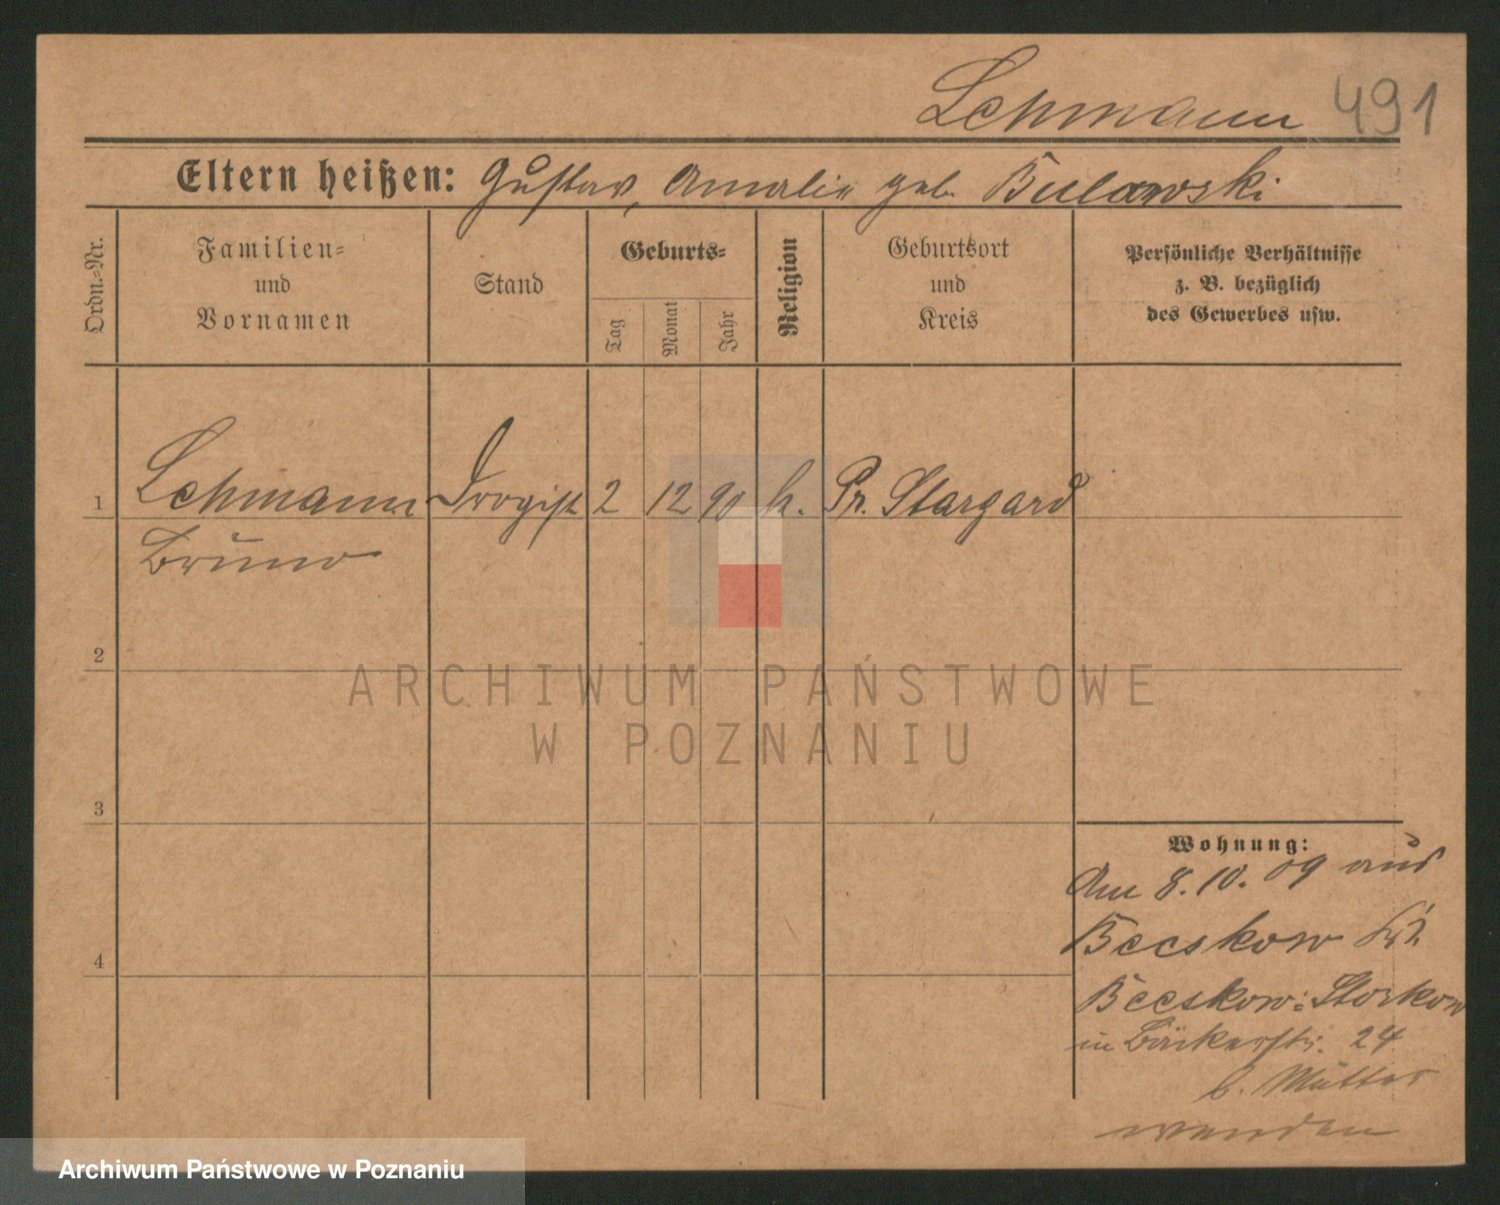 Lehmann 491
Eltern heißen: Gustav, Amalie geb. Bulawski
Ordn.-Nr.
Familien-
und
Vornamen
Stand
Geburts-
Tag
Monat
Jahr
Religion
Geburtsort
und
Kreis
Persönliche Verhältnisse
z. B. bezüglich
des Gewerbes usw.
1 Lehmann Drogist 2 12 90 k. Pr. Stargard
Bruno
2
ARCHIWUM PAŃSTWOWE
W POZNANIU
3
Wohnung:
Am 8.10.09 aus
Beeskow Kr.
4
Beeskow-Storkow
in Bäckerstr. 24
b. Mutter
wenden
Archiwum Państwowe w Poznaniu